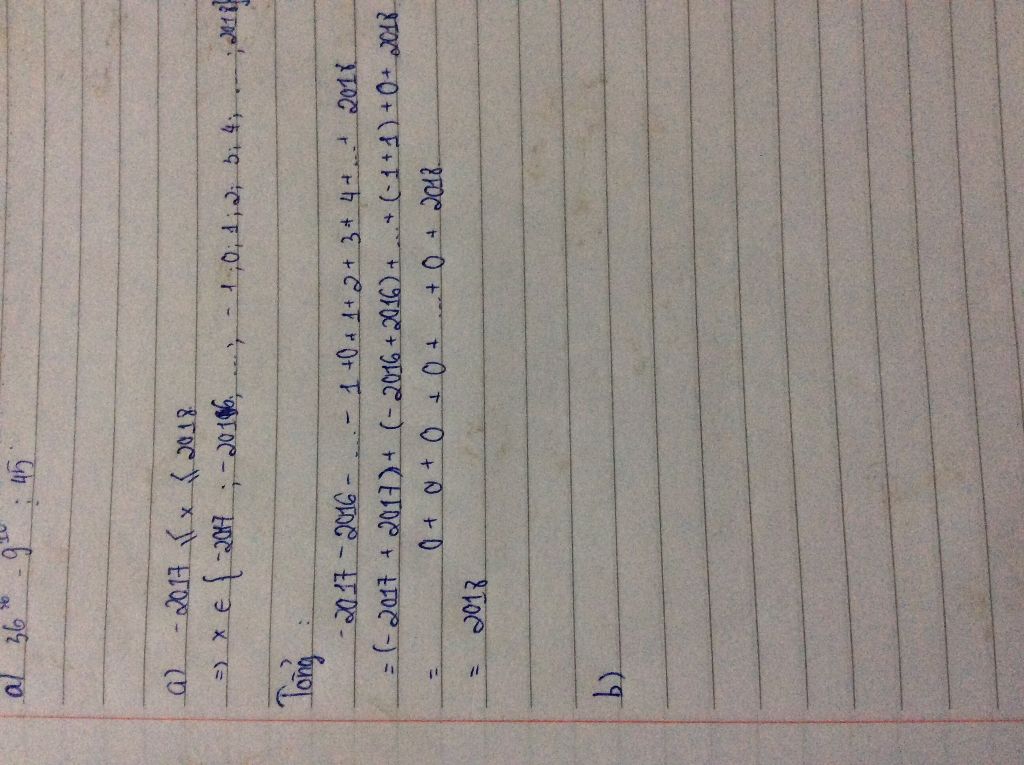 a) 36³⁶ - 9¹⁰ : 45
a) -2017 ≤ x ≤ 2018
=> x ∈ {-2017 ; -2016; ...; -1; 0; 1; 2; 3; 4; ... ; 2018}
Tổng :
-2017 - 2016 - ... - 1 + 0 + 1 + 2 + 3 + 4 + ... + 2018
= (-2017 + 2017) + (-2016 + 2016) + ... + (-1 + 1) + 0 + 2018
= 0 + 0 + 0 + 0 + ... + 0 + 2018
= 2018
b)